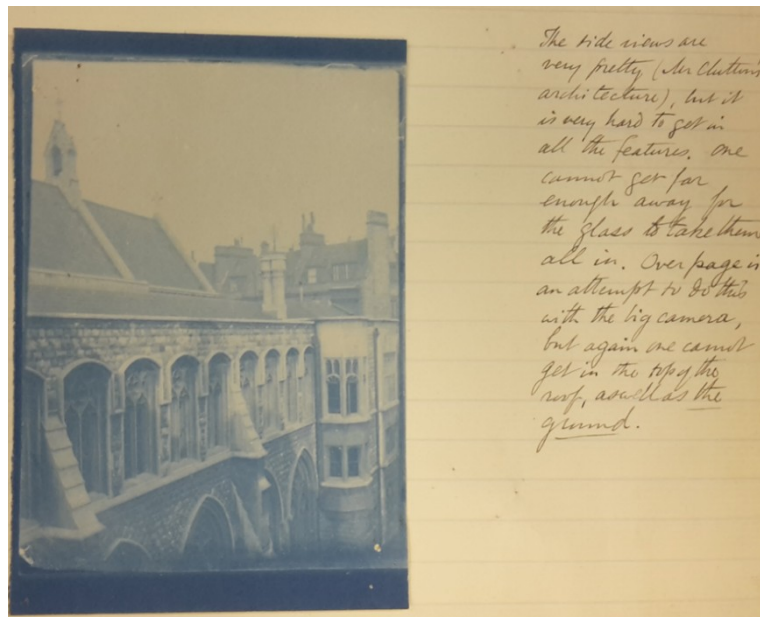 The side views are
very pretty (Mr Clutton's
architecture), but it
is very hard to get in
all the features. One
cannot get far
enough away for
the glass to take them
all in. Over page is
an attempt to do this
with the big camera,
but again one cannot
get in the top of the
roof, aswell as the
ground.